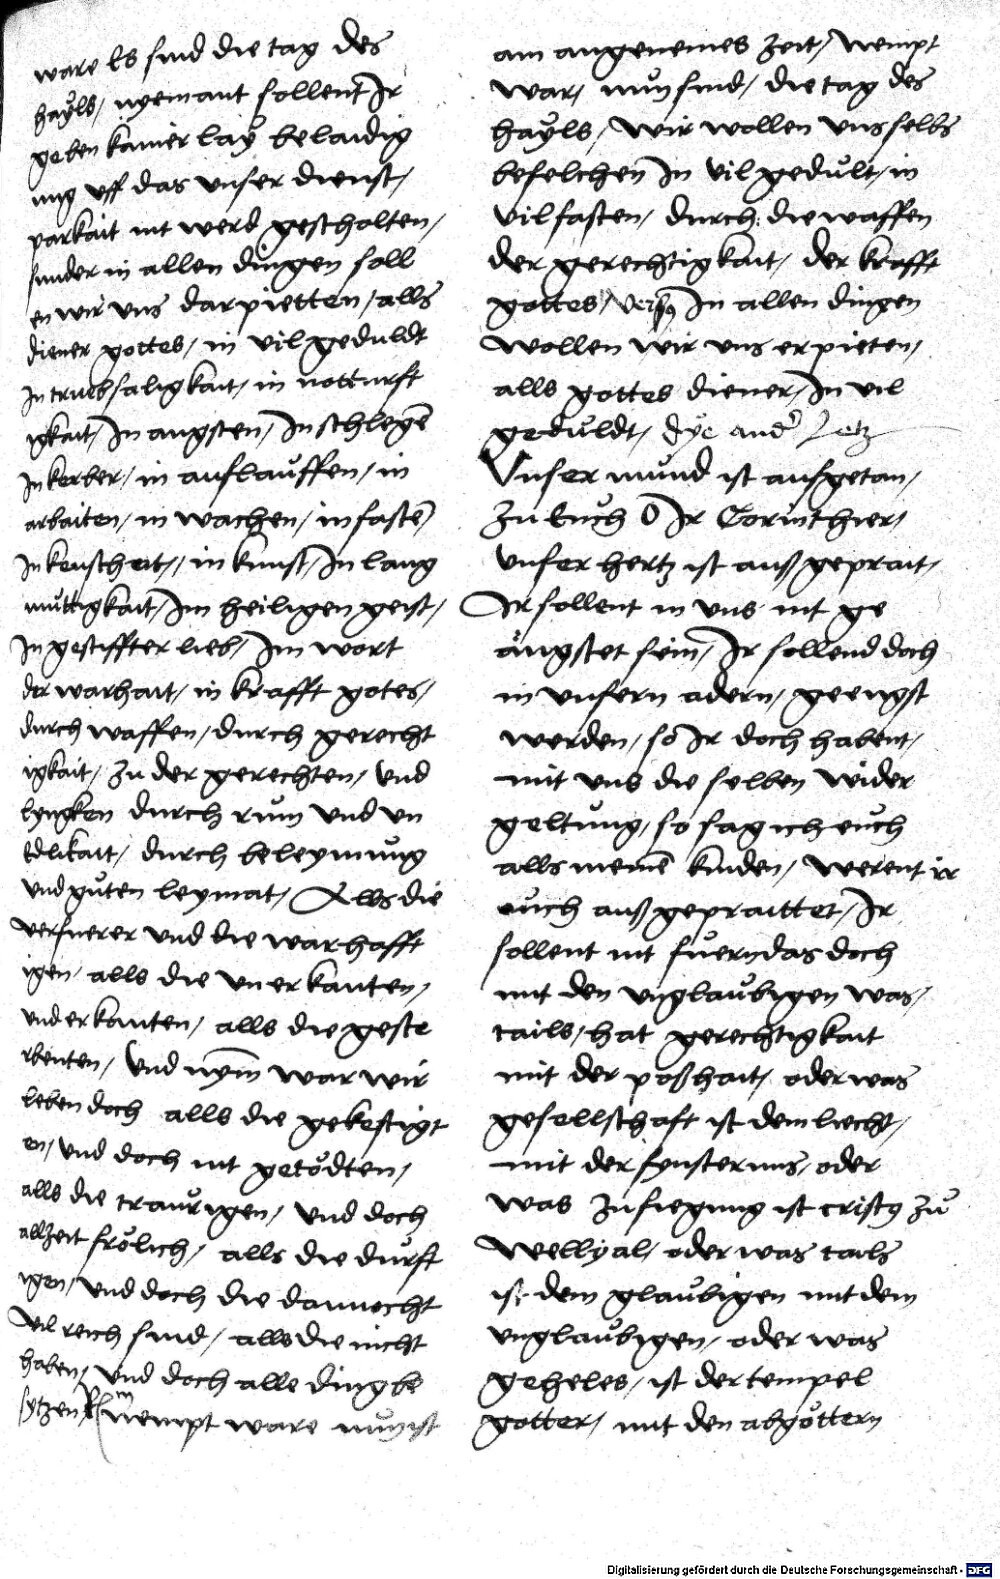 ware Es sind die tag des
hayls, nyemant sollent Ir
geben kainer lay belaidig
ung uff das unser dienst,
parkait nit werd gescholten,
sunder in allen dingen soll
en wir uns darpietten, alls
diener gottes, in vil geduldt
In truebsaligkait, in notturft
igkait, In angsten, In schlegen
In kerker, in auflauffen, in
arbaiten, in wachen, in fasten
In keuscheit, in kunst, In lang
muttigkait, Im heiligen geist,
In gestiffter lieb, Im wort
der warhait, in krafft gotes,
durch waffen, durch gerecht
igkait, zu der gerechten, und
lyngken durch rum und un
edlikait, durch beleymung
und guten leymat, Alls die
verfuerer und die warhafft
igen, alls die unerkanten,
und erkanten, alls die geste
rbenten, Und nym war wir
leben doch alls die gekestigt
en, und doch nit getödten,
alls die traurigen, und doch
allzeit frölich, alls die durft
igen, und doch die dannocht
vil reich sind, alls die nicht
haben, und doch alle ding be
sytzen, nempt ware nun ist
am angenemes zeit, Nempt
war, nun sind, die tag des
hayls, Wir wollen uns selbs
befelchen In vil gedult, in
vil fasten, durch die waffen
der gerechtigkait, der krafft
gottes, versus In allen dingen
wollen wir uns erpieten,
alls gottes diener, In vil
geduldt, dye ander Letz
Unser mund ist aufgetan,
zu Euch O Ir Corinthier,
unser hertz ist auß geprait,
Ir sollent in uns nit ge
ängstet sein, Ir sollend doch
in unsern adern, geengst
werden, so Ir doch habent,
mit uns die selben wider
geltung, so sag ich euch
alls meinen kinden, Werent ir
euch auß gepraittet, Ir
sollent nit fuern das doch
mit den unglaubigen was,
tails, hat gerechtigkait
mit der poßhait, oder was
gesellschaft ist dem liecht,
mit der fynsternus, oder
was zufiegung ist cristus zu
Wellyal, oder was tails
ist dem glaubigen mit dem
unglaubigen, oder was
geheles, ist der tempel
gotter, mit den abgöttern
Digitalisierung gefördert durch die Deutsche Forschungsgemeinschaft - DFG